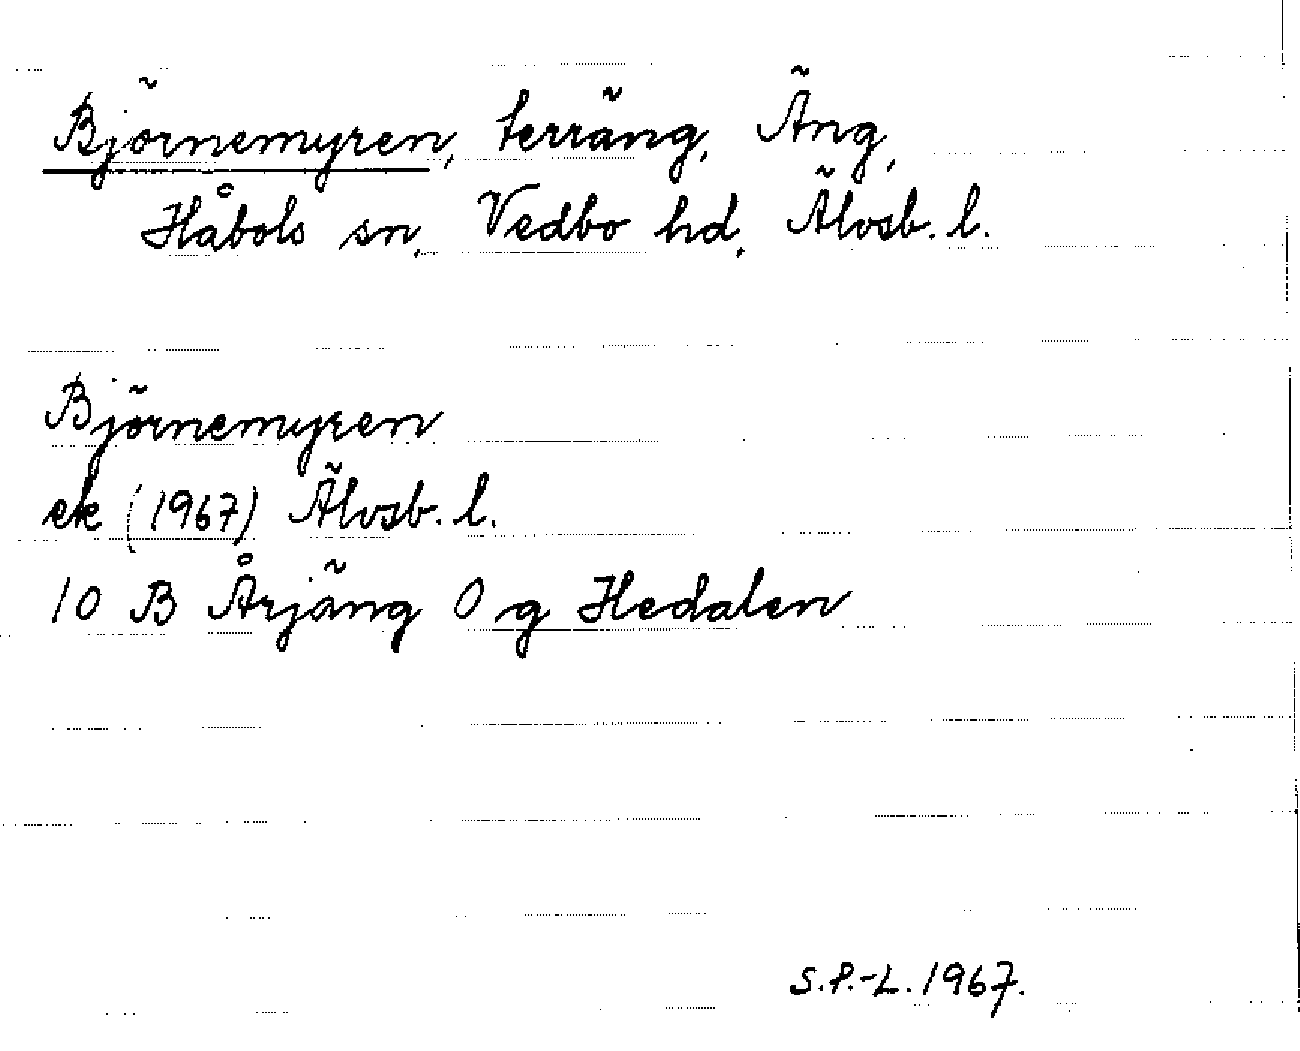 Björnemyren, terräng, Äng,
Håbols sn, Vedbo hd, Älvsb. l.
Björnemyren
ek (1967) Älvsb. l.
10 B Årjäng O g Hedalen
S.P.-L. 1967.